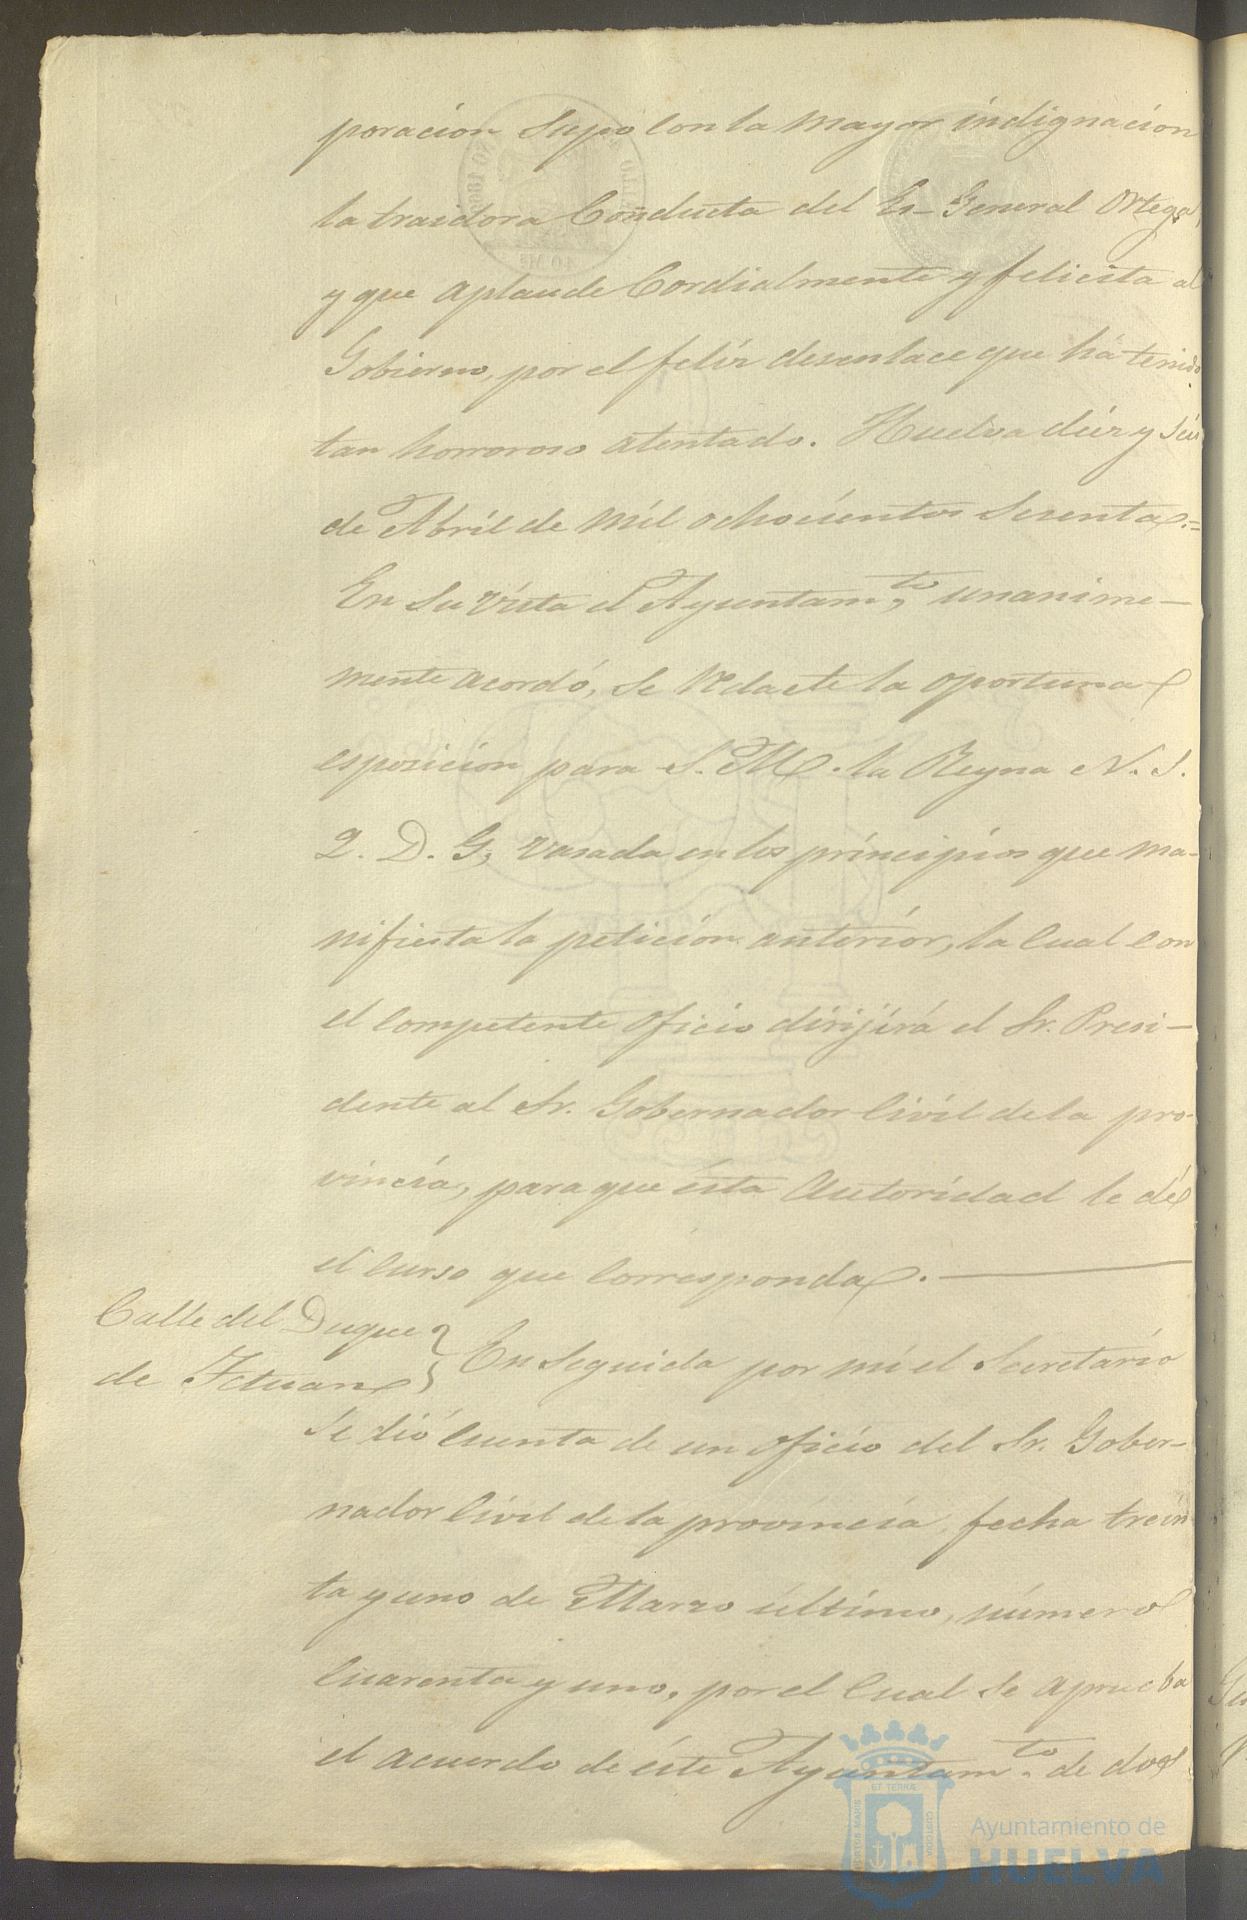 poracion Supo con la mayor indignacion
la traidora Conducta del Ex- General Ortega,
y que aplaude Cordialmente y felicita al
Gobierno, por el felíz desenlace que há tenido
tan horroroso atentado. Huelva diez y seis
de Abril de mil ochocientos Sesenta.=
En Su vista el Ayuntam.to unanime-
mente acordó, Se redacte la oportuna
esposicion para S. M. la Reyna N. S.
Q. D. G, vasada en los principios que ma-
nifiesta la peticion anterior, la Cual con
el competente oficio dirijirá el Sr. Presi-
dente al Sr. Gobernador Civil de la pro-
vincia, para que ésta Autoridad le dé
el curso que corresponda.
Calle del Duque
de Tetuan
En Seguida por mí el Secretario
Se dió cuenta de un oficio del Sr. Gober-
nador Civil de la provincia, fecha trein
ta y uno de Marzo último, número
Cuarenta y uno, por el Cual Se aprueba
el acuerdo de éste Ayuntam.to de dos
ET TERRÆ
PORTUS MARIS
CUSTODIA
Ayuntamiento de
HUELVA